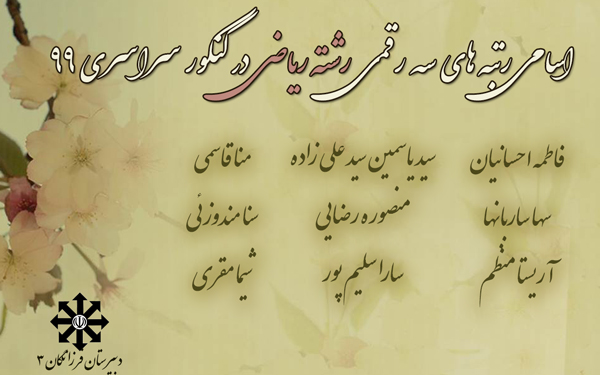 اسامی رتبه های سه رقمی رشته ریاضی در کنکور سراسری ۹۹
فاطمه احسانیان سید یاسمین سید علی زاده منا قاسمی
سها سارمانها منصوره رضایی سنا مندوزئی
آریستا منظم سارا سلیم پور شیما مقری
دبیرستان فرزانگان ۳